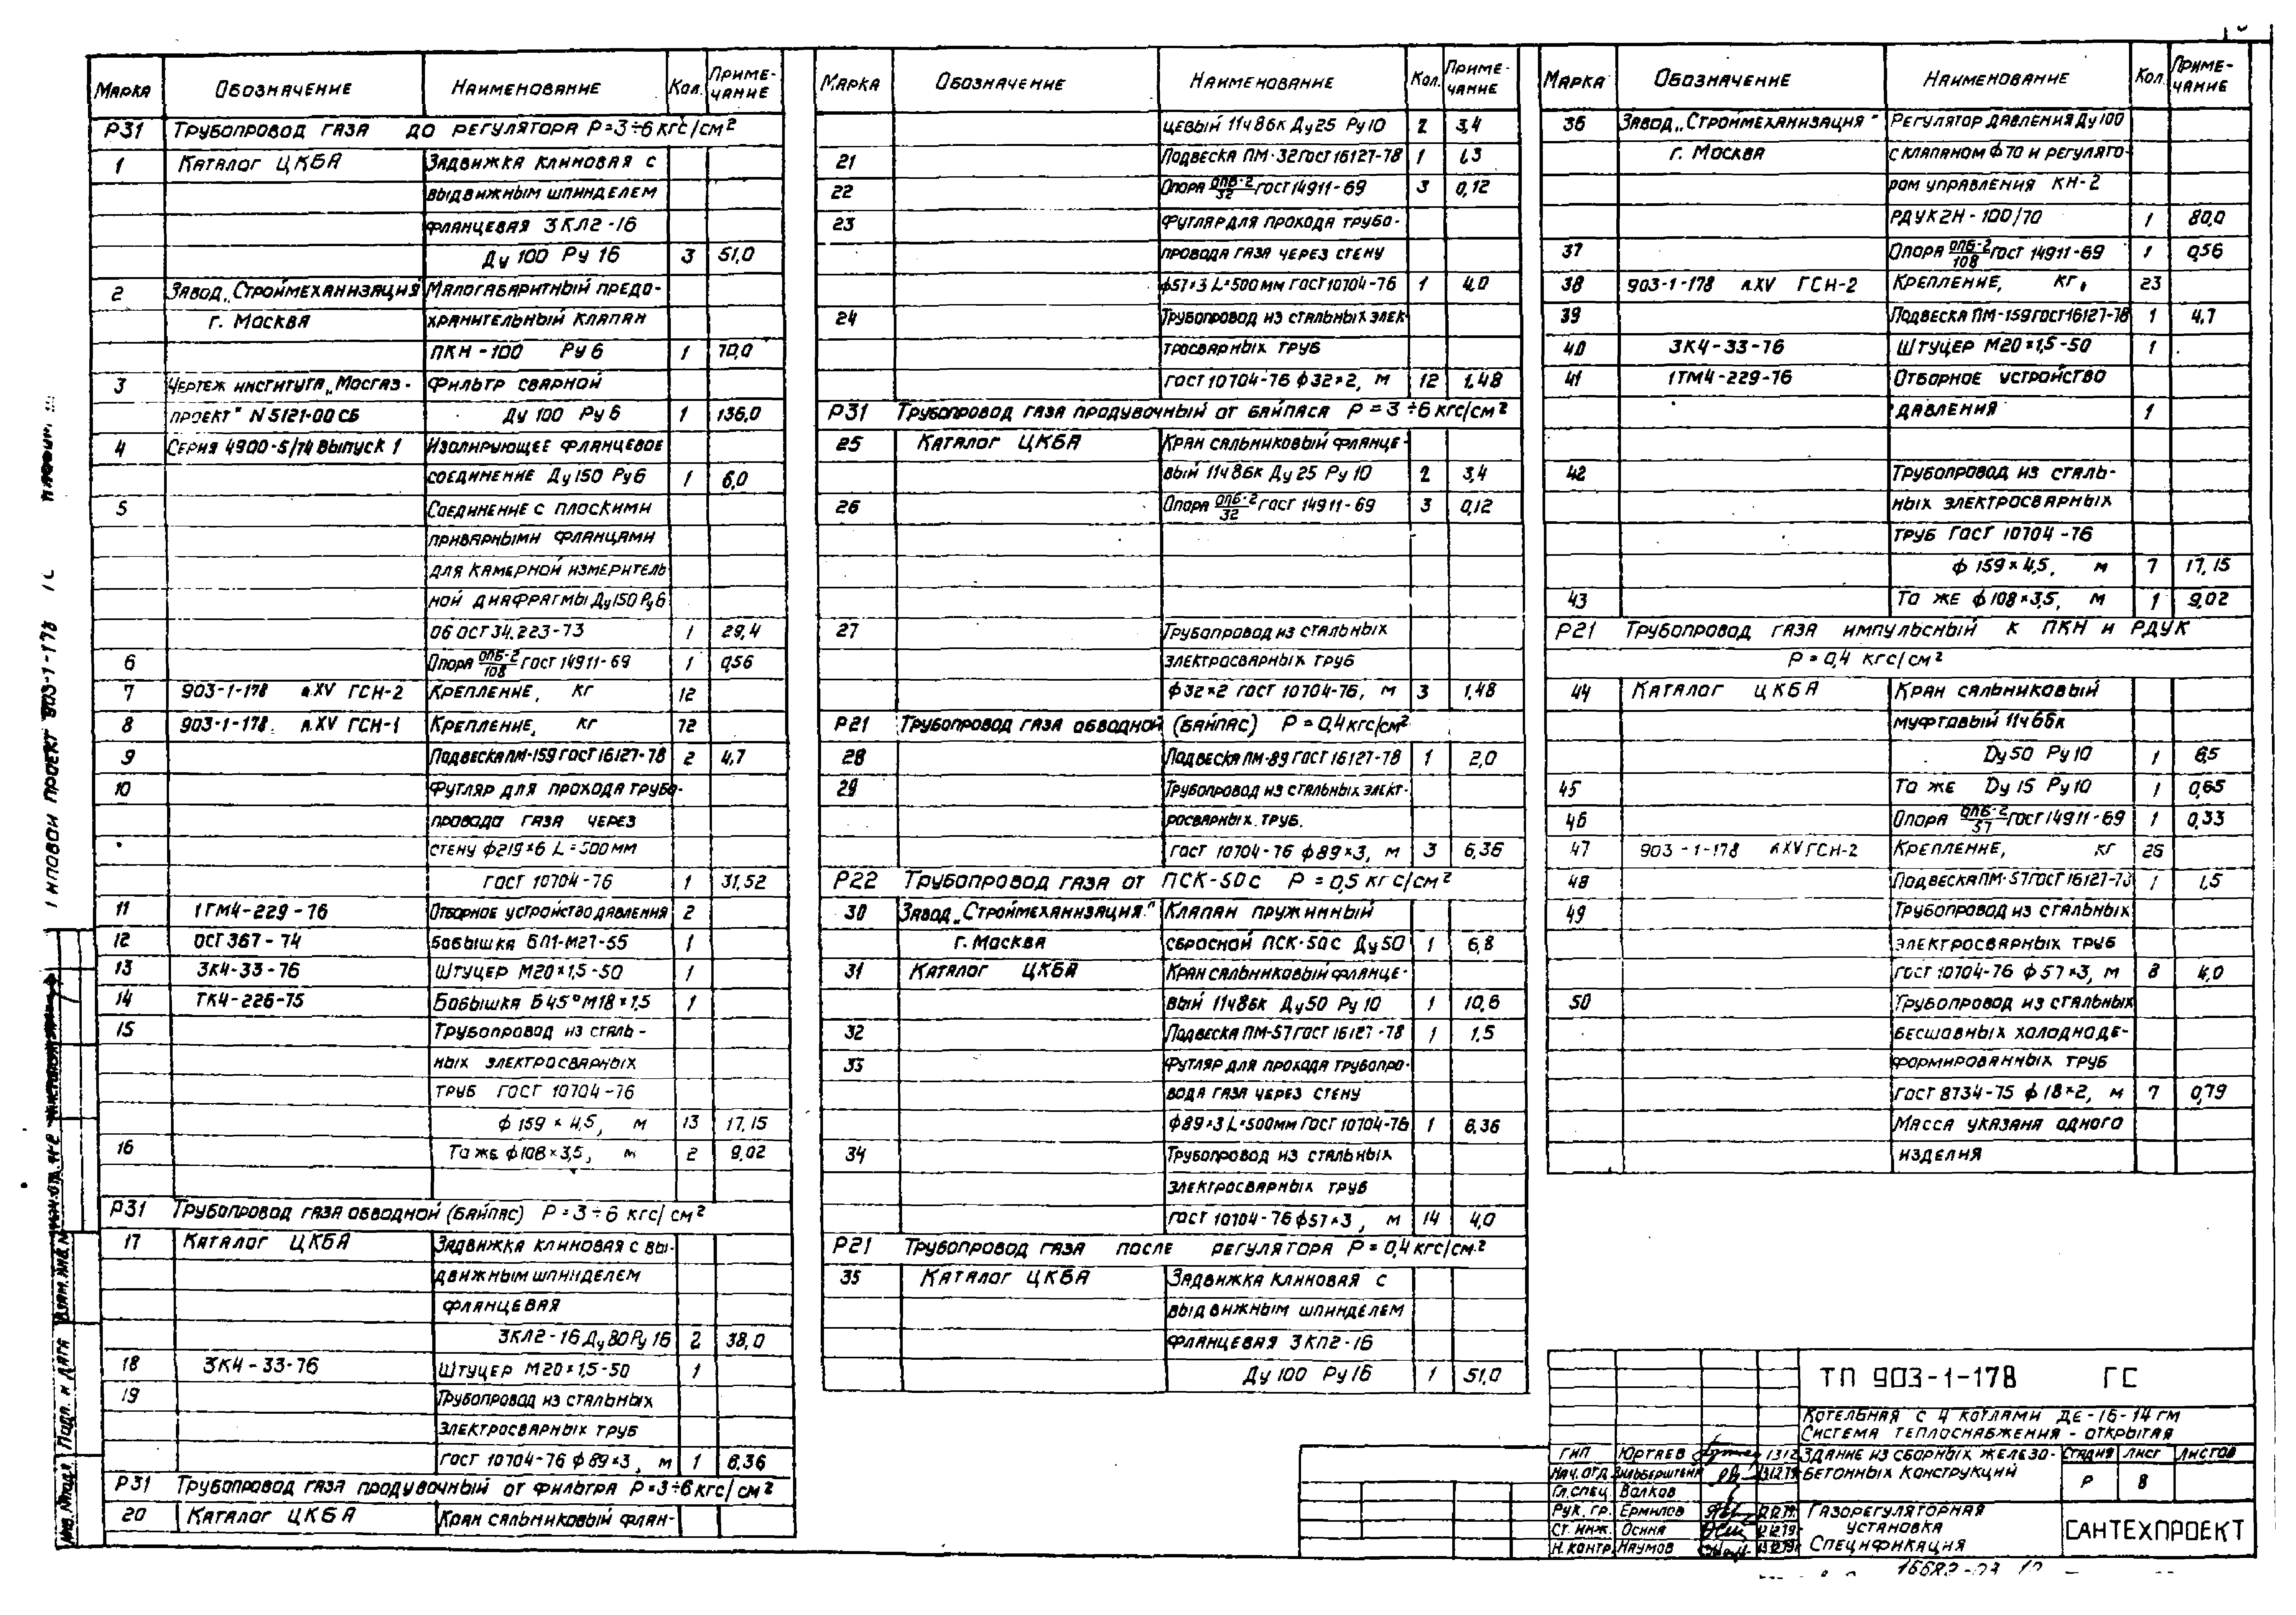 Марка Обозначение Наименование Кол. Примечание
Р31 Трубопровод газа до регулятора Р=3÷6 кгс/см²
1 Каталог ЦКБА Задвижка клиновая с
выдвижным шпинделем
фланцевая ЗКЛ2-16
Ду 100 Ру 16 3 51,0
2 Завод „Строймеханизация Малогабаритный предо-
г. Москва хранительный клапан
ПКН-100 Ру 6 1 70,0
3 Чертеж института „Мосгаз- Фильтр сварной
проект" N 5121-00 СБ Ду 100 Ру 6 1 136,0
4 Серия 4900-5/74 Выпуск 1 Изолирующее фланцевое
соединение Ду 150 Ру 6 1 6,0
5 Соединение с плоскими
приварными фланцами
для камерной измеритель
ной диафрагмы Ду 150 Ру 6
06 ОСТ 34.223-73 1 29,4
6 Опора ОПБ-2/108 ГОСТ 14911-69 1 0,56
7 903-1-178 л.XV ГСН-2 Крепление, кг 12
8 903-1-178 л.XV ГСН-1 Крепление, кг 72
9 Подвеска ПМ-159 ГОСТ 16127-78 2 4,7
10 Футляр для прохода трубо-
провода газа через
стену ф219×6 L=500мм
ГОСТ 10704-76 1 31,52
11 1ТМ4-229-76 Отборное устройство давления 2
12 ОСТ 367-74 Бобышка БП1-М27-55 1
13 ЗК4-33-76 Штуцер М20×1,5-50 1
14 ТК4-226-75 Бобышка Б45°М18×1,5 1
15 Трубопровод из сталь-
ных электросварных
труб ГОСТ 10704-76
ф 159 × 4,5, м 13 17,15
16 То же ф108×3,5, м 2 9,02
Р31 Трубопровод газа обводной (байпас) Р=3÷6 кгс/см²
17 Каталог ЦКБА Задвижка клиновая с вы-
движным шпинделем
фланцевая
ЗКЛ2-16 Ду 80 Ру 16 2 38,0
18 ЗК4-33-76 Штуцер М20×1,5-50 1
19 Трубопровод из стальных
электросварных труб
ГОСТ 10704-76 ф89×3, м 1 6.36
Р31 Трубопровод газа продувочный от фильтра Р=3÷6 кгс/см²
20 Каталог ЦКБА Кран сальниковый флан-
Марка Обозначение Наименование Кол. Примечание
цевый 11ч8бк Ду25 Ру10 2 3,4
21 Подвеска ПМ-32 ГОСТ 16127-78 1 1,3
22 Опора ОПБ-2/32 ГОСТ 14911-69 3 0,12
23 Футляр для прохода трубо-
провода газа через стену
ф57×3 L=500мм ГОСТ 10704-76 1 4,0
24 Трубопровод из стальных элек-
тросварных труб
ГОСТ 10704-76 ф32×2, м 12 1,48
Р31 Трубопровод газа продувочный от байпаса Р=3÷6 кгс/см²
25 Каталог ЦКБА Кран сальниковый фланце-
вый 11ч8бк Ду 25 Ру 10 2 3,4
26 Опора ОПБ-2/32 ГОСТ 14911-69 3 0,12
27 Трубопровод из стальных
электросварных труб
ф32×2 ГОСТ 10704-76, м 3 1,48
Р21 Трубопровод газа обводной (байпас) Р=0,4 кгс/см²
28 Подвеска ПМ-89 ГОСТ 16127-78 1 2,0
29 Трубопровод из стальных элект-
росварных труб.
ГОСТ 10704-76 ф89×3, м 3 6,36
Р22 Трубопровод газа от ПСК-50С Р=0,5 кгс/см²
30 Завод „Строймеханизация" Клапан пружинный
г. Москва сбросной ПСК-50С Ду50 1 6,8
31 Каталог ЦКБА Кран сальниковый фланце-
вый 11ч8бк Ду50 Ру 10 1 10,6
32 Подвеска ПМ-57 ГОСТ 16127-78 1 1,5
33 Футляр для прохода трубопро-
вода газа через стену
ф89×3 L=500мм ГОСТ 10704-76 1 6.36
34 Трубопровод из стальных
электросварных труб
ГОСТ 10704-76 ф57×3, м 14 4,0
Р21 Трубопровод газа после регулятора Р=0,4 кгс/см²
35 Каталог ЦКБА Задвижка клиновая с
выдвижным шпинделем
фланцевая ЗКЛ2-16
Ду 100 Ру 16 1 51,0
Марка Обозначение Наименование Кол. Примечание
36 Завод „Строймеханизация" Регулятор давления Ду100
г. Москва с клапаном ф70 и регулято-
ром управления КН-2
РДУК2Н-100/70 1 80,0
37 Опора ОПБ-2/108 ГОСТ 14911-69 1 0,56
38 903-1-178 л.XV ГСН-2 Крепление, кг, 23
39 Подвеска ПМ-159 ГОСТ 16127-78 1 4,7
40 ЗК4-33-76 Штуцер М20×1,5-50 1
41 1ТМ4-229-76 Отборное устройство
давления 1
42 Трубопровод из сталь-
ных электросварных
труб ГОСТ 10704-76
ф 159×4,5, м 7 17,15
43 То же ф108×3,5, м 1 9,02
Р21 Трубопровод газа импульсный к ПКН и РДУК
Р=0,4 кгс/см²
44 Каталог ЦКБА Кран сальниковый
муфтовый 11ч6бк
Ду 50 Ру 10 1 6,5
45 То же Ду 15 Ру 10 1 0,65
46 Опора ОПБ-2/57 ГОСТ 14911-69 1 0,33
47 903-1-178 л.XV ГСН-2 Крепление, кг 26
48 Подвеска ПМ-57 ГОСТ 16127-73 1 1,5
49 Трубопровод из стальных
электросварных труб
ГОСТ 10704-76 ф57×3, м 8 4,0
50 Трубопровод из стальных
бесшовных холоднодe-
формированных труб
ГОСТ 8734-75 ф18×2, м 7 0,79
Масса указана одного
изделия
Типовой проект 903-1-178
Взам. инв. N
Подп. и дата
Инв. N подл.
ТП 903-1-178 ГС
Котельная с 4 котлами ДЕ-16-14ГМ
Система теплоснабжения - открытая
ГИП Юртаев Здание из сборных железо-
бетонных конструкций
Стадия Лист Листов
Р 8
Нач. отд. Зильберштейн
Гл. спец. Волков
Рук. гр. Ермилов
Ст. инж. Осина
Н. контр. Наумов
Газорегуляторная
установка
Спецификация
САНТЕХПРОЕКТ